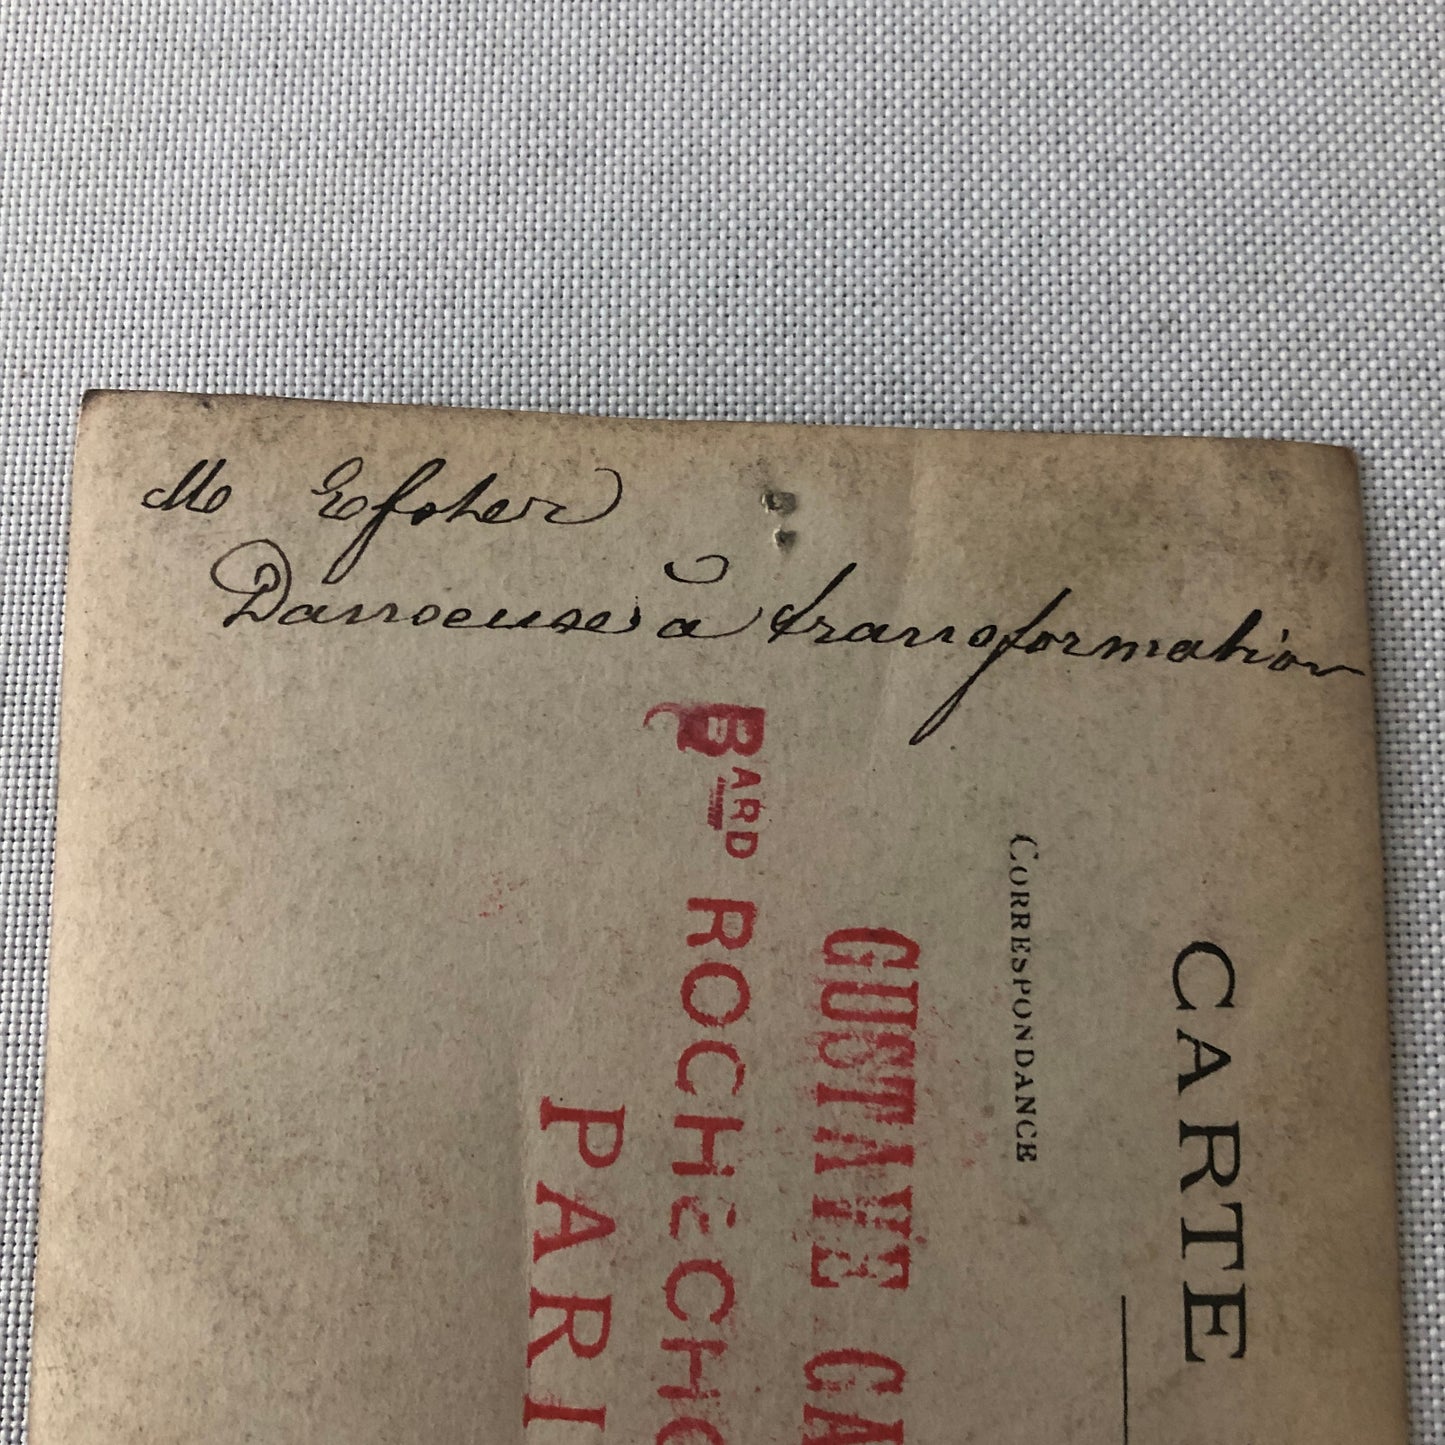 M Esther
Danseuse à transformation
CARTE
CORRESPONDANCE
GUSTAVE CA
BARD ROCHECHO
PARI